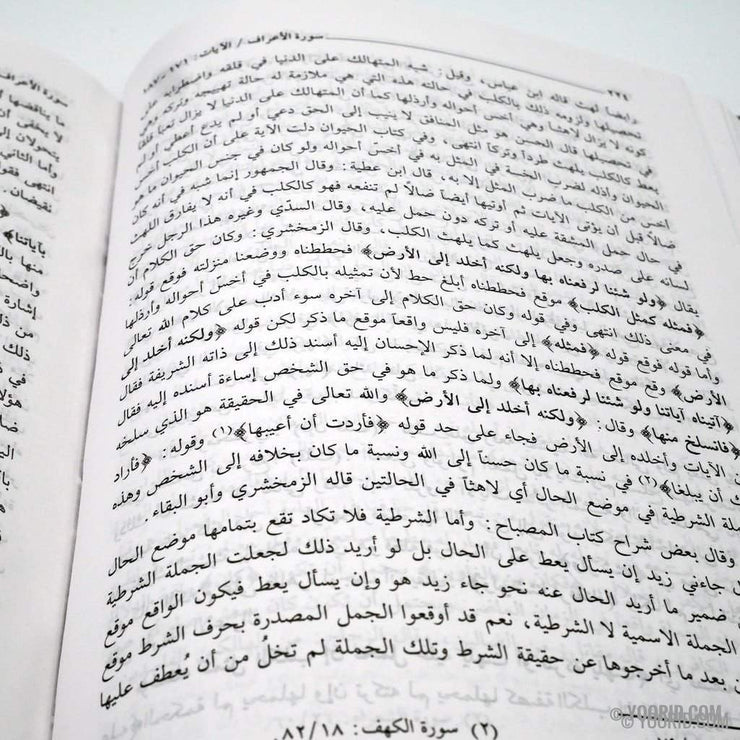 سورة الأعراف / الآيات: ١٧١ - ١٨٢
٢٢٤
وأيضاً لهث قاله ابن عباس، وقيل: شبه المتهالك على الدنيا في قلقه واضطرابه على
تحصيلها ولزومه ذلك بالكلب في حالته هذه التي هي ملازمة له حالة تهييجه وتركه
كونه لا يزال لاهثاً وهي أخس أحواله وأرذلها كما أن المتهالك على الدنيا لا يزال تعباً قلقاً
في تحصيلها قال الحسن هو مثل المنافق لا ينيب إلى الحق دعي أو لم يدع أعطي أو لم
يعط كالكلب يلهث طرداً وتركاً انتهى، وفي كتاب الحيوان دلت الآية على أن الكلب أخس
الحيوان وأذله لضرب الخسة في المثل به في أخس أحواله ولو كان في جنس الحيوان ما هو
أخس من الكلب ما ضرب المثل إلا به، قال ابن عطية: وقال الجمهور إنما شبه في أنه كان
ضالاً قبل أن يؤتى الآيات ثم أوتيها أيضاً ضالاً لم تنفعه فهو كالكلب في أنه لا يفارق اللهث
في حال حمل المشقة عليه أو تركه دون حمل عليه، وقال السدّي وغيره هذا الرجل خرج
لسانه على صدره وجعل يلهث كما يلهث الكلب، وقال الزمخشري: وكان حق الكلام أن
يقال ﴿ولو شئنا لرفعناه بها ولكنه أخلد إلى الأرض﴾ فحططناه ووضعنا منزلته فوقع قوله:
﴿فمثله كمثل الكلب﴾ موقع فحططناه أبلغ حط لأن تمثيله بالكلب في أخسّ أحواله وأرذلها
في معنى ذلك انتهى وفي قوله وكان حق الكلام إلى آخره سوء أدب على كلام الله تعالى
وأما قوله فوقع قوله ﴿فمثله﴾ إلى آخره فليس واقعاً موقع ما ذكر لكن قوله ﴿ولكنه أخلد إلى
الأرض﴾ وقع موقع فحططناه إلا أنه لما ذكر الإحسان إليه أسند ذلك إلى ذاته الشريفة فقال
﴿آتيناه آياتنا ولو شئنا لرفعناه بها﴾ ولما ذكر ما هو في حق الشخص إساءة أسنده إليه فقال
﴿فانسلخ منها﴾ وقال: ﴿ولكنه أخلد إلى الأرض﴾ والله تعالى في الحقيقة هو الذي سلخه
من الآيات وأخلده إلى الأرض فجاء على حد قوله ﴿فأردت أن أعيبها﴾(١) وقوله: ﴿فأراد
ربك أن يبلغا﴾(٢) في نسبة ما كان حسناً إلى الله ونسبة ما كان بخلافه إلى الشخص وهذه
الجملة الشرطية في موضع الحال أي لاهثاً في الحالتين قاله الزمخشري وأبو البقاء.
وقال بعض شراح كتاب المصباح: وأما الشرطية فلا تكاد تقع بتمامها موضع الحال
جاءني زيد إن يسأل يعط على الحال بل لو أريد ذلك لجعلت الجملة الشرطية
ضمير ما أريد الحال عنه نحو جاء زيد هو وإن يسأل يعط فيكون الواقع موقع
الجملة الاسمية لا الشرطية، نعم قد أوقعوا الجمل المصدرة بحرف الشرط موقع
بعد ما أخرجوها عن حقيقة الشرط وتلك الجملة لم تخلُ من أن يُعطف عليها
(٢) سورة الكهف: ٨٢/١٨.
سورة الأعراف
ما يناقضها
لا يخفى أن
يتحولان إلى
وأما الثاني
انتهى فقول
نقيضان.
بآياتنا﴾
منها بال
واضحا
إشارة
من ذل
ذلك
في ذ
هؤلا
ضا
© YOORID.COM